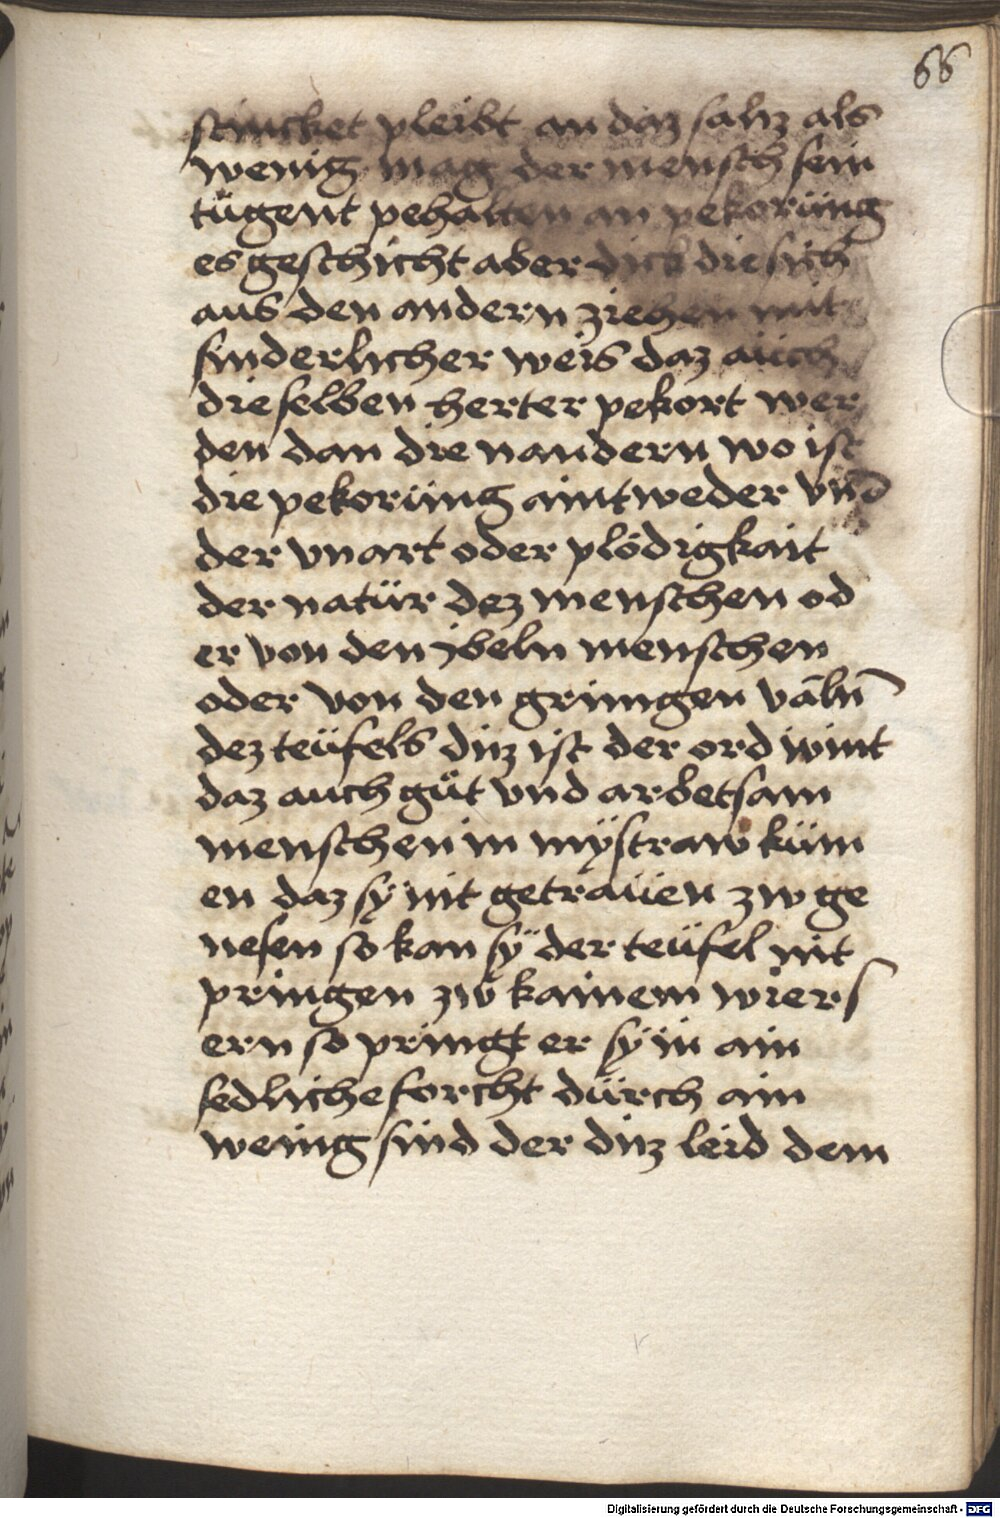 66
stincket pleibt an daz saltz als
wenig mag der mensch sein
tügent pehalten an pekorüng
es geschicht aber dick die sich
aus den andern ziehen mit
sinderlicher weis daz auch
die selben herter pekort wer
den dan die nandern wo ist
die pekorüng aintweder vnd
der vnart oder plödigkait
der natür dez menschen od
er von den ybeln menschen
oder von den grimgen väln̄
dez teüfels ditz ist der ord wint
daz auch güt vnd arbetsam
menschen in mÿstraw küm
en daz sÿ nit getraüen zw ge
nesen so kan sÿ der teüfel nit
pringen zw kainem wiers
ern so pringt er sÿ in ain
sedliche forcht dürch ain
wenig sind der ditz leid dem
Digitalisierung gefördert durch die Deutsche Forschungsgemeinschaft - DFG